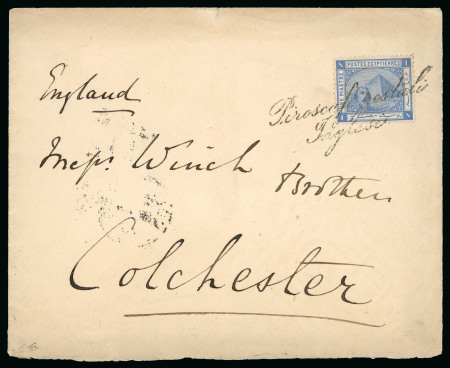 POSTES EGYPTIENNES
Piroscafi postali
Inglesi
England
Messrs Winch
Brothers
Colchester